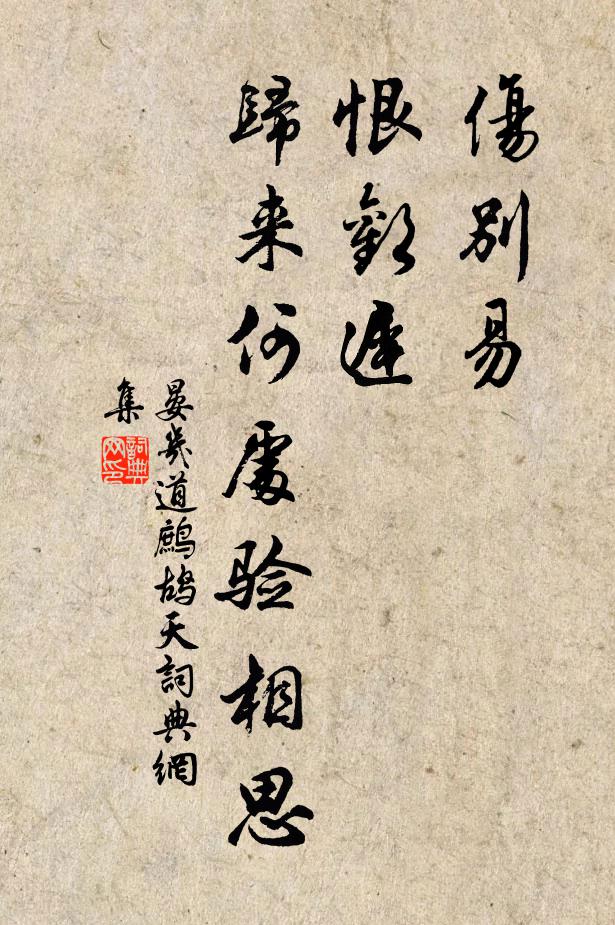 傷別易
恨歡遲
歸来何處验相思
晏幾道鷓鴣天詞典網
集
詞典
网印